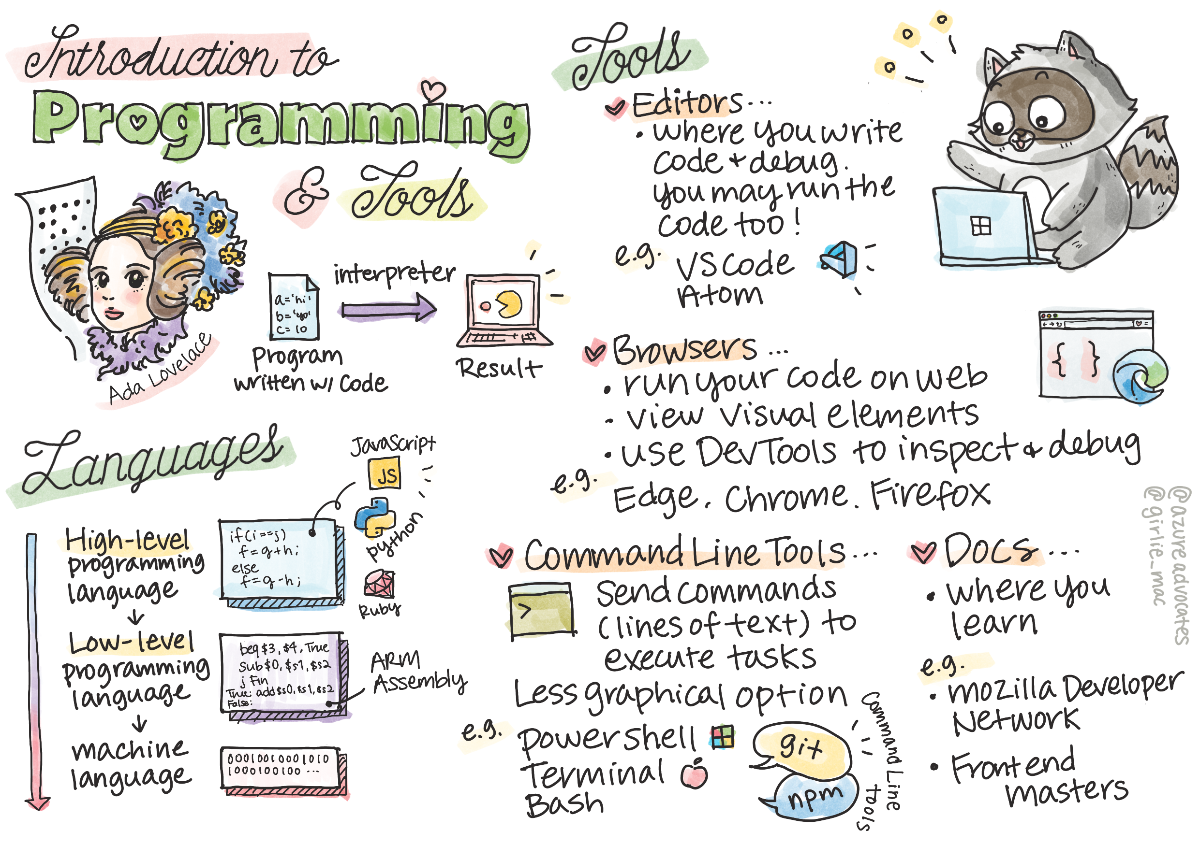 Introduction to
Programming
& Tools
Ada Lovelace
a='hi'
b='yo'
c=10
Program
written w/ Code
interpreter
Result
Languages
High-level
programming
language
if(i==j)
f=g+h;
else
f=g-h;
JavaScript
JS
python
Ruby
Low-level
programming
language
beq $3, $4, True
Sub $0, $s1, $s2
j Fin
True: add $s0, $s1, $s2
False:
ARM
Assembly
machine
language
00010010001010
1000100100 ...
Tools
Editors...
• where you write
code + debug.
you may run the
code too!
e.g.
VS code
Atom
Browsers ...
• run your code on web
• view visual elements
• use DevTools to inspect & debug
e.g.
Edge, Chrome, Firefox
{ }
Command Line Tools ...
>
Send commands
(lines of text) to
execute tasks
Less graphical option
e.g.
powershell
Terminal
Bash
git
npm
Command Line
Tools
Docs ...
• where you
learn
e.g.
• Mozilla Developer
Network
• Frontend
masters
@azureadvocates
@girlie_mac